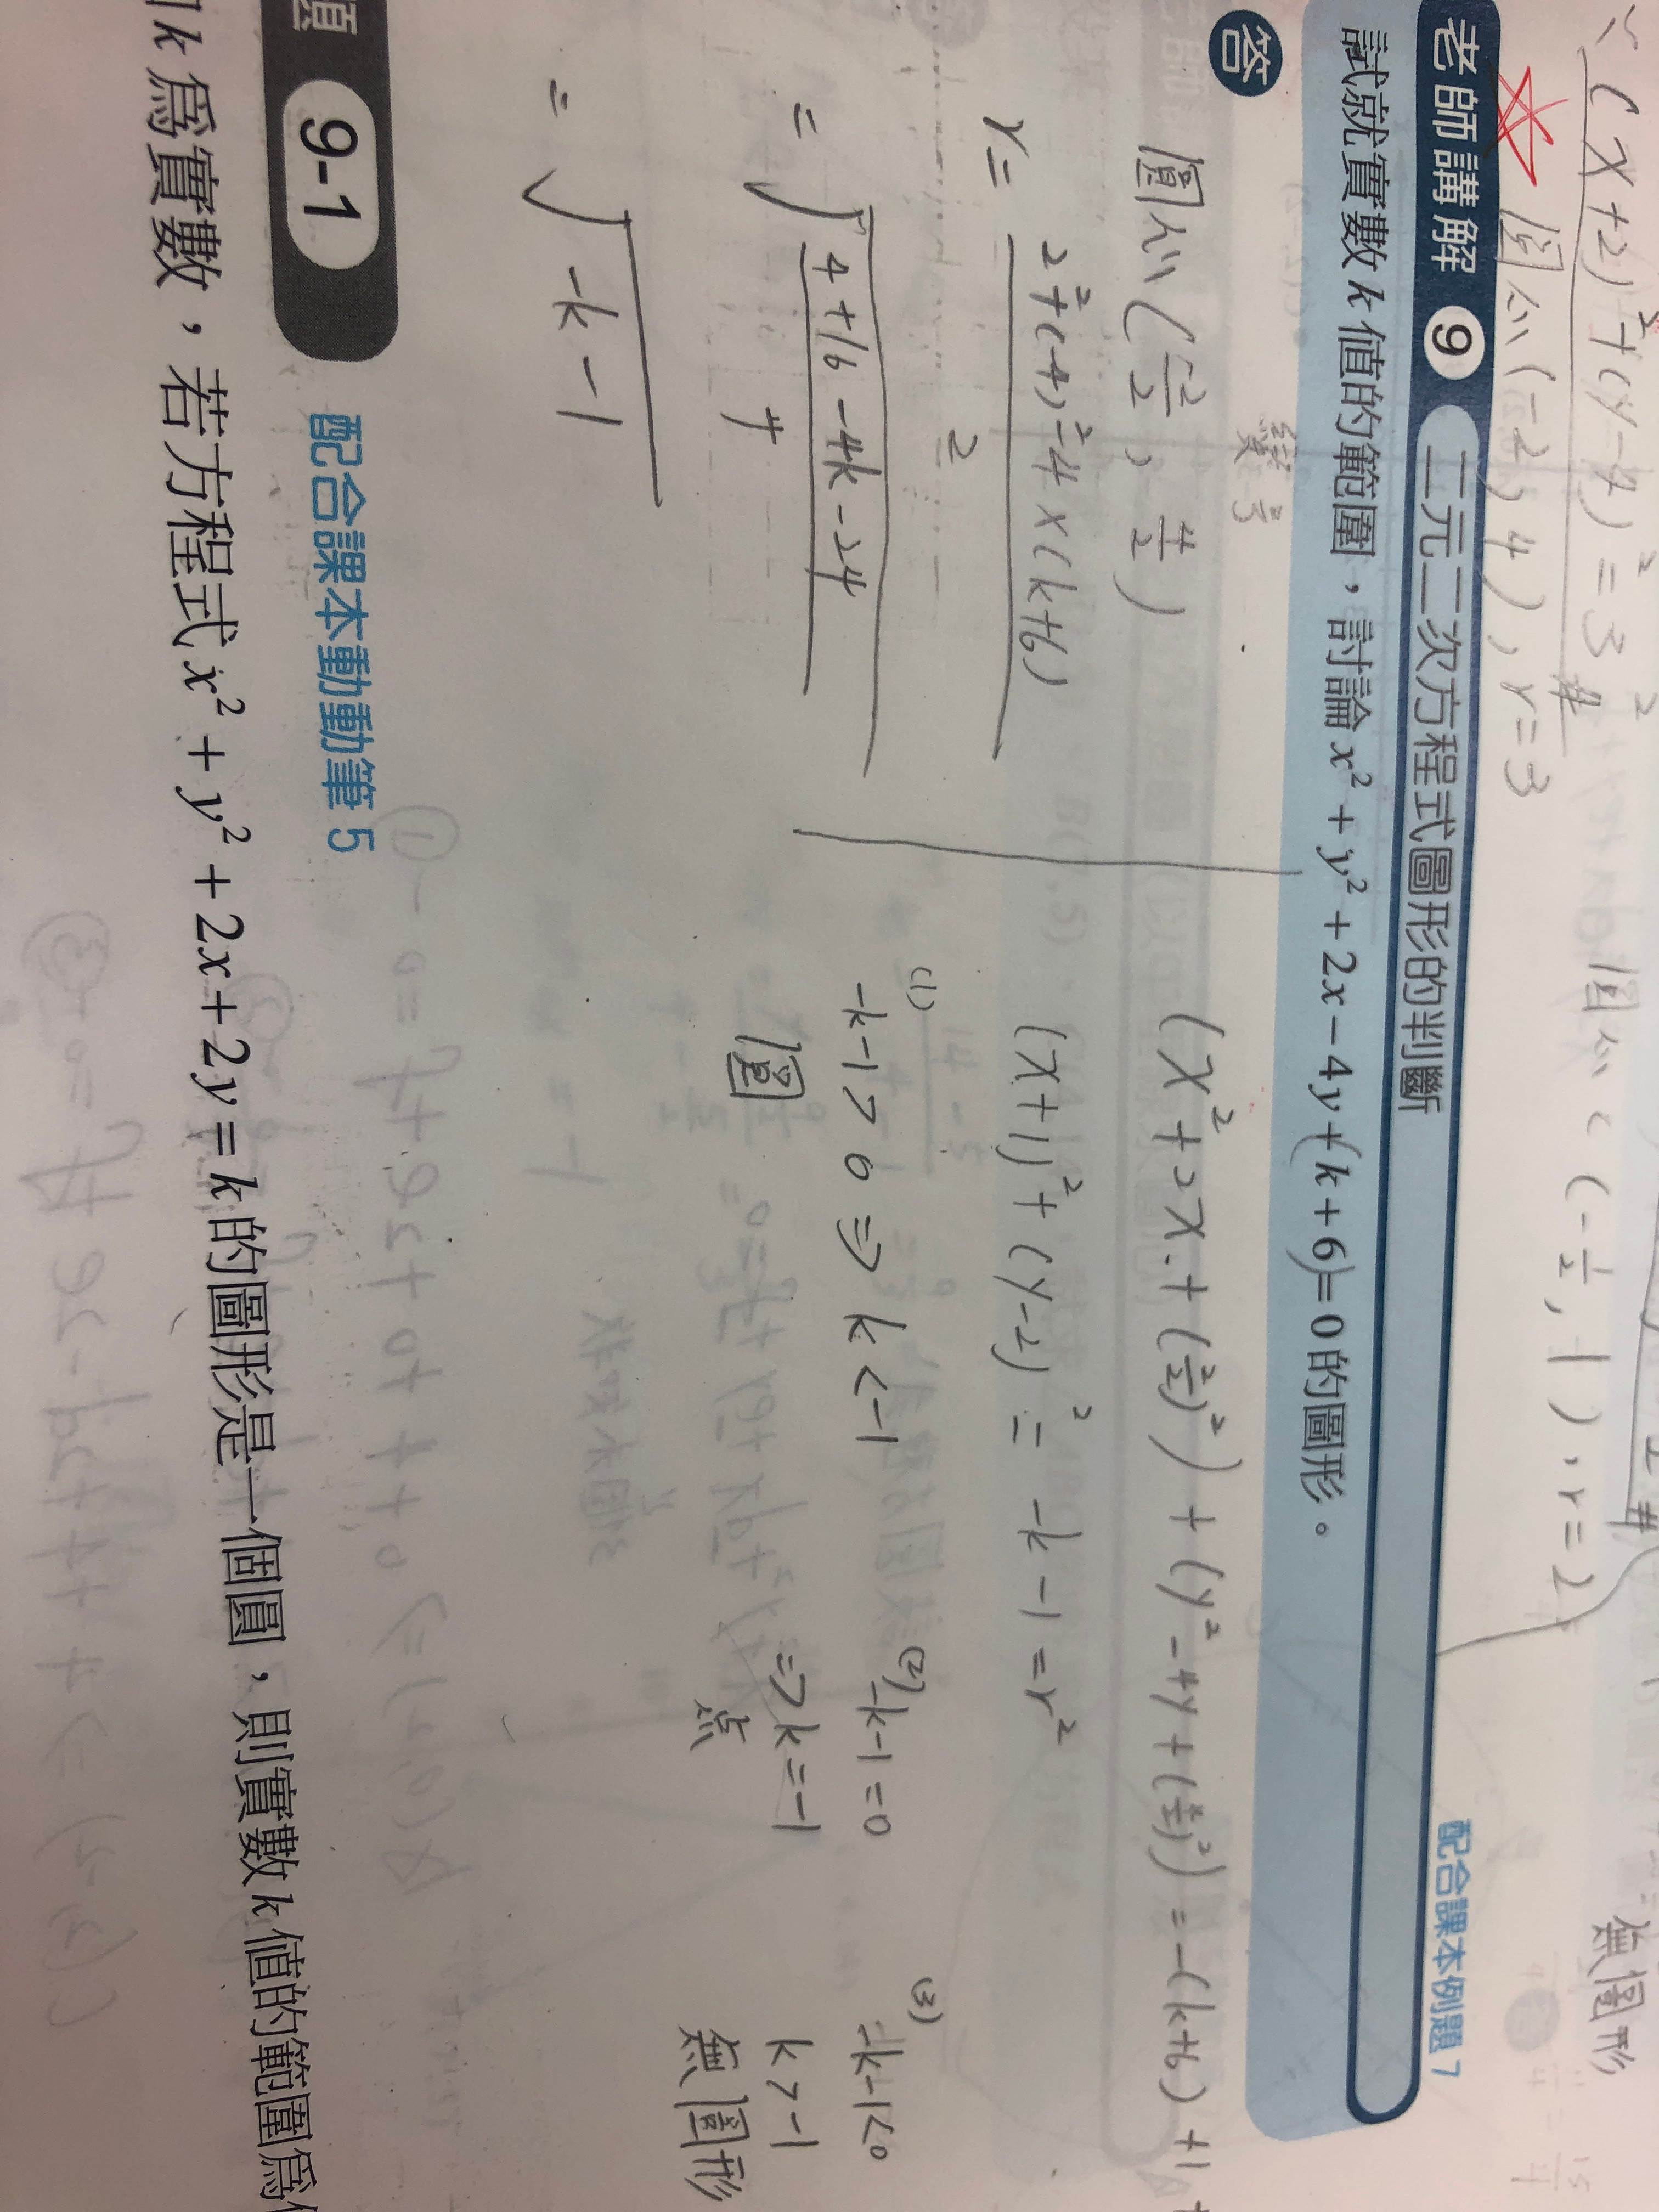 (x+2)²+(y-4)²=3²
圓心(-2,4),r=3
圓心(-1/2,1),r=2
無圖形
老師講解 9 二元二次方程式圖形的判斷 配合課本例題 7
試就實數 k 值的範圍,討論 x² + y² + 2x − 4y + (k + 6) = 0 的圖形。
答
變號
圓心(-2/2, 4/2)
r= 2²+(-4)²-4×(k+6) / 2
= √(4+16-4k-24 / 4)
= √(-k-1)
(x²+2x+(2/2)²)+(y²-4y+(4/2)²)=-(k+6)+1
(x+1)²+(y-2)²=-k-1=r²
(1) -k-1>0 ⇒ k<-1
圓
(2) -k-1=0
⇒k=-1
点
(3) -k-1<0
k>-1
無圖形
題 9-1 配合課本動動筆 5
k 為實數,若方程式 x² + y² + 2x + 2y = k 的圖形是一個圓,則實數 k 值的範圍為